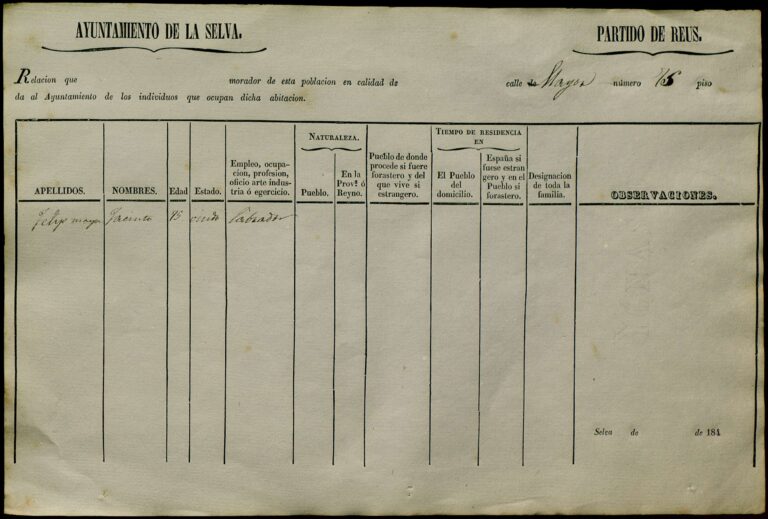 AYUNTAMIENTO DE LA SELVA.
PARTIDO DE REUS.
Relacion que morador de esta poblacion en calidad de calle de Mayor número piso
da al Ayuntamiento de los individuos que ocupan dicha abitacion.
APELLIDOS.
NOMBRES.
Edad
Estado.
Empleo, ocupa-
cion, profesion,
oficio arte indus-
tria ó egercicio.
NATURALEZA.
Pueblo.
En la
Prov.ª ó
Reyno.
Pueblo de donde
procede si fuere
forastero y del
que vive si
estrangero.
TIEMPO DE RESIDENCIA
EN
El Pueblo
del
domicilio.
España si
fuese estran
gero y en el
Pueblo si
forastero.
Designacion
de toda la
familia.
OBSERVACIONES.
Felip mayor Jacinto viudo Labrador
Selva de de 184